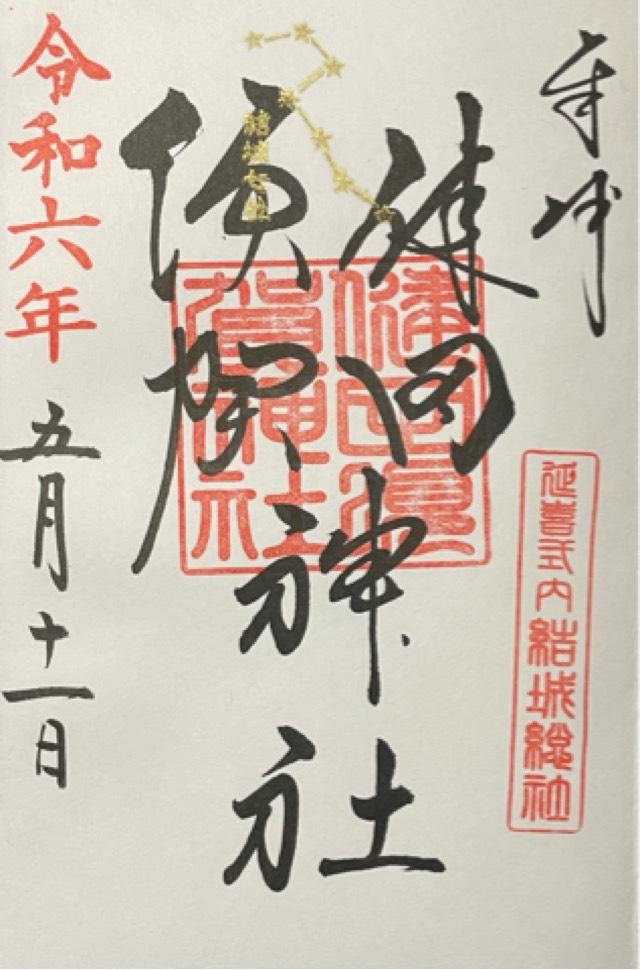 奉拝
延喜式内結城総社
健田
須賀
神社
健田須
賀神社
結城七社
令和六年五月十一日